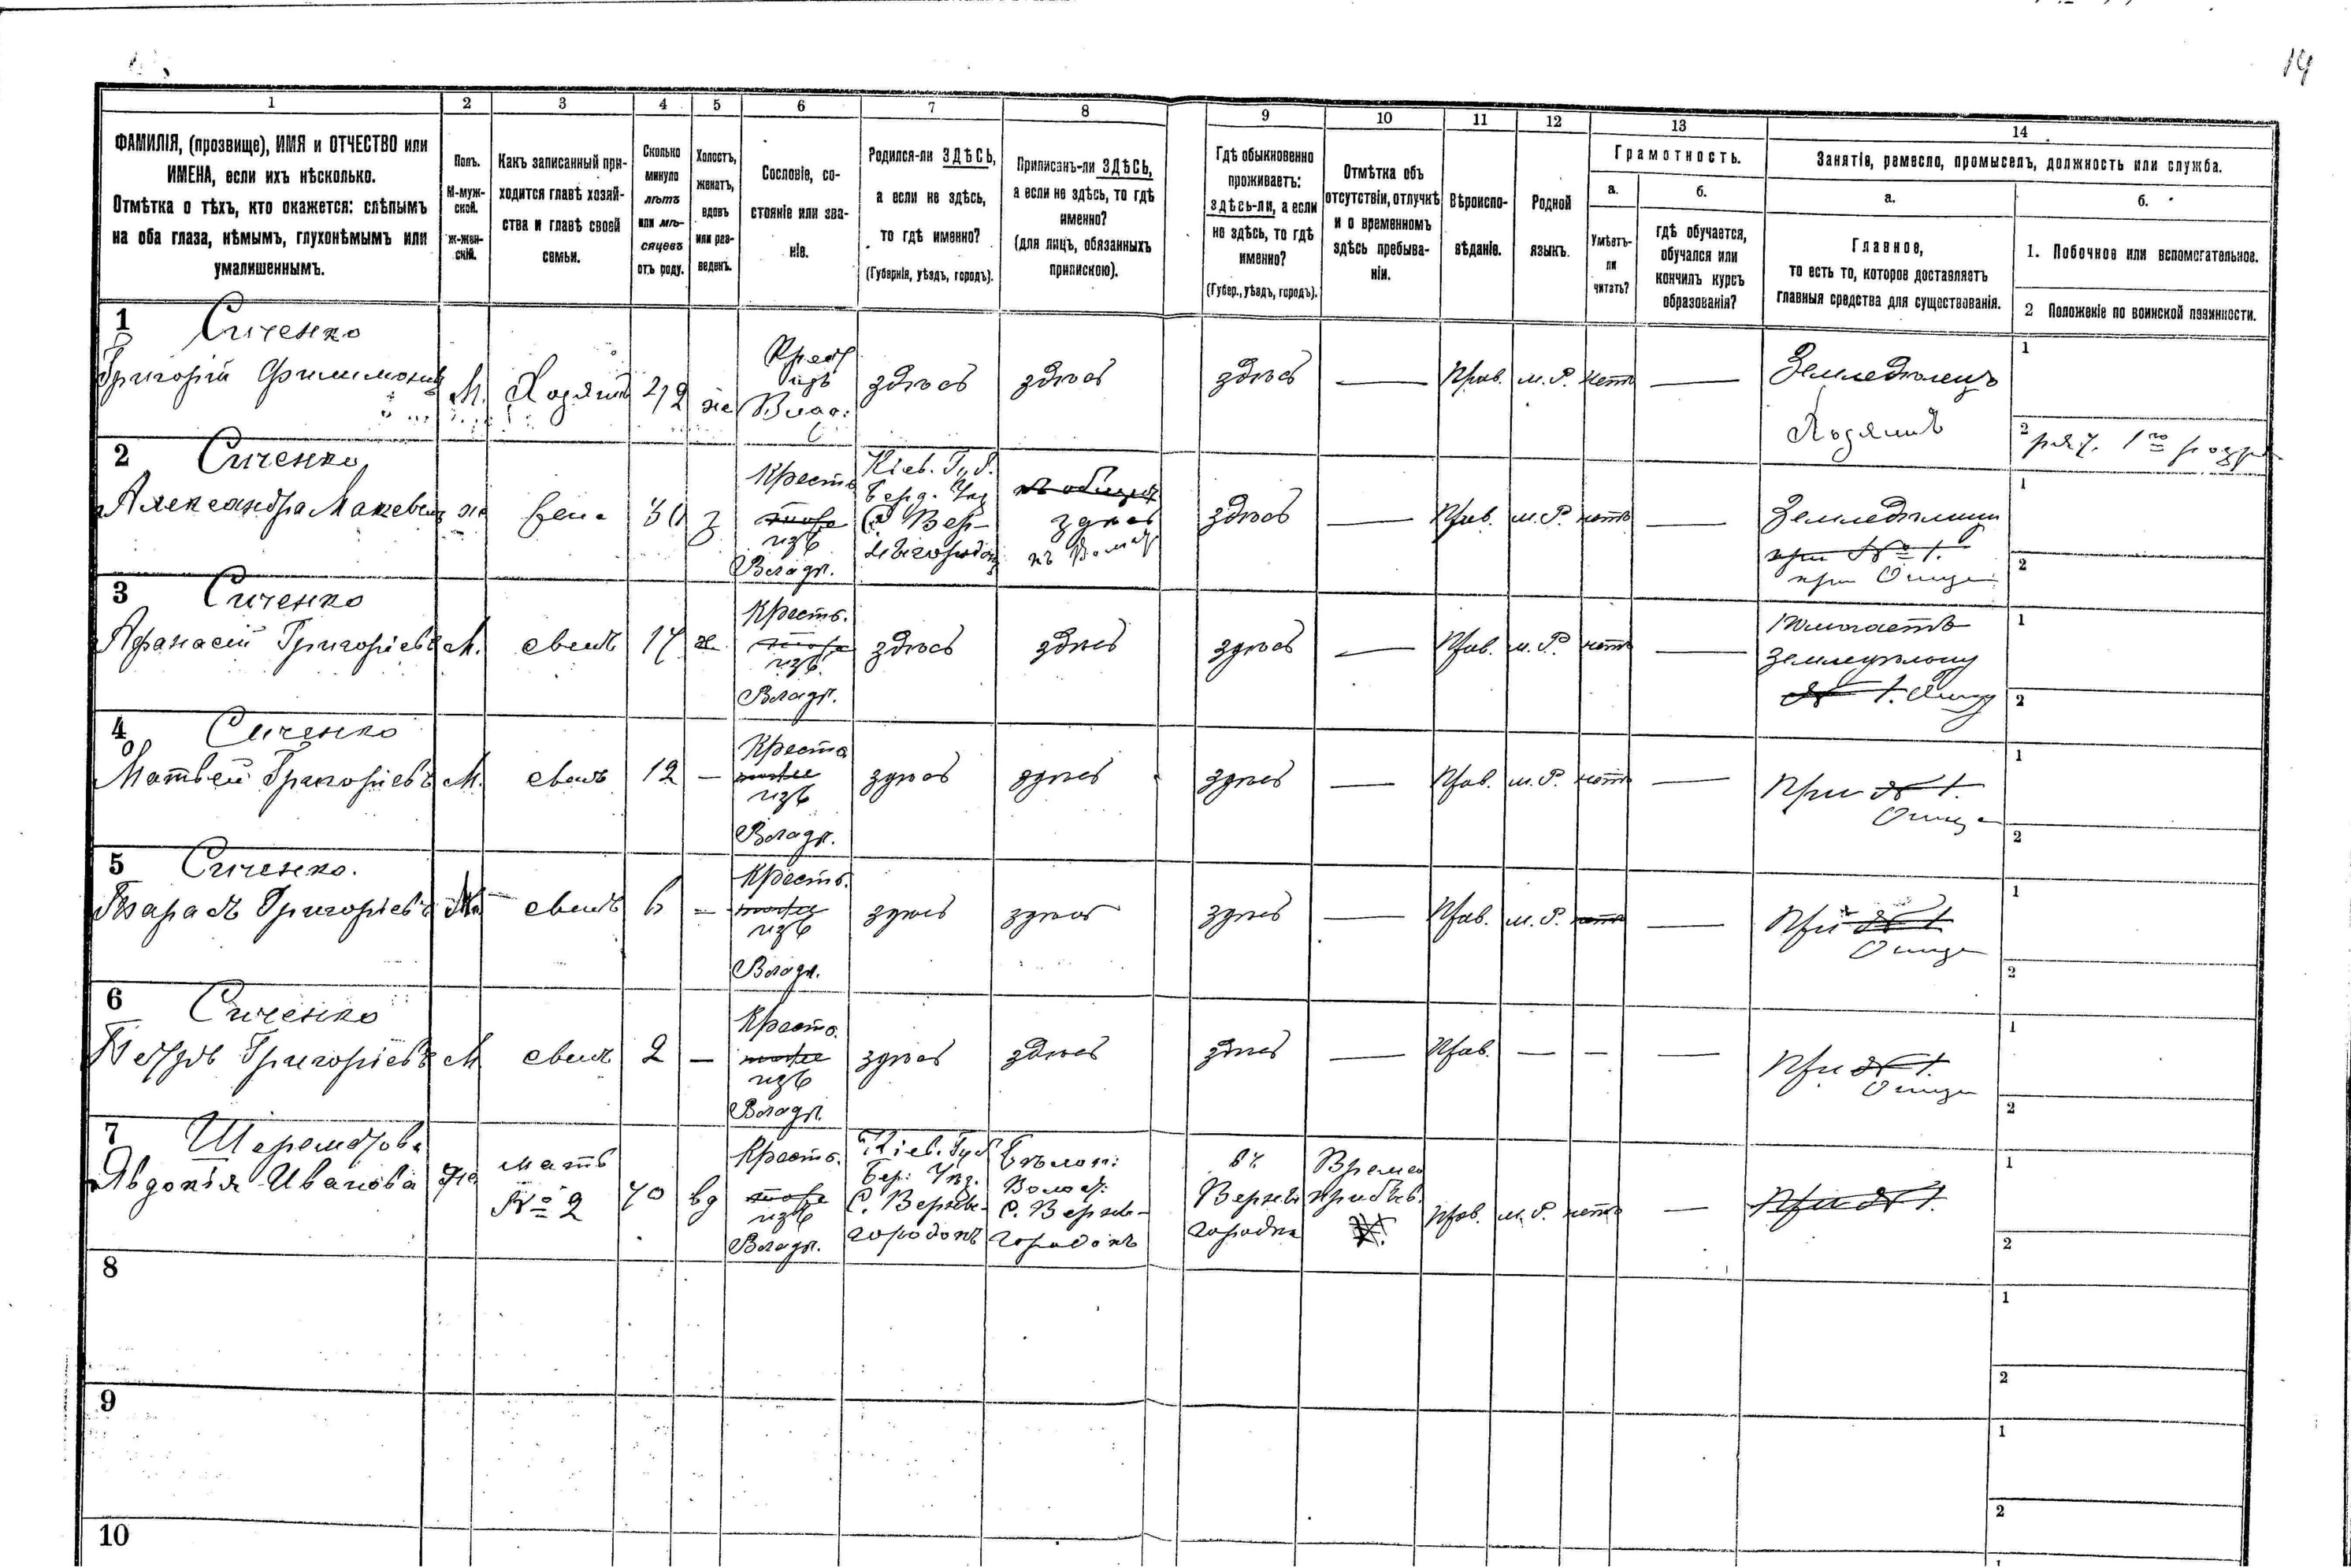 14
1 2 3 4 5 6 7 8 9 10 11 12 13 14
ФАМИЛІЯ, (прозвище), ИМЯ и ОТЧЕСТВО или
ИМЕНА, если ихъ нѣсколько.
Отмѣтка о тѣхъ, кто окажется: слѣпымъ
на оба глаза, нѣмымъ, глухонѣмымъ или
умалишеннымъ.
Полъ.
М-муж-
ской.
ж-жен-
скій.
Какъ записанный при-
ходится главѣ хозяй-
ства и главѣ своей
семьи.
Сколько
минуло
лѣтъ
или мѣ-
сяцевъ
отъ роду.
Холостъ,
женатъ,
вдовъ
или раз-
веденъ.
Сословіе, со-
стояніе или зва-
ніе.
Родился-ли ЗДѢСЬ,
а если не здѣсь,
то гдѣ именно?
(Губернія, уѣздъ, городъ).
Приписанъ-ли ЗДѢСЬ,
а если не здѣсь, то гдѣ
именно?
(для лицъ, обязанныхъ
припискою).
Гдѣ обыкновенно
проживаетъ:
здѣсь-ли, а если
не здѣсь, то гдѣ
именно?
(Губер., уѣздъ, городъ).
Отмѣтка объ
отсутствіи, отлучкѣ
и о временномъ
здѣсь пребыва-
ніи.
Вѣроиспо-
вѣданіе.
Родной
языкъ.
Грамотность.
а.
Умѣетъ-
ли
читать?
б.
гдѣ обучается,
обучался или
кончилъ курсъ
образованія?
Занятіе, ремесло, промыселъ, должность или служба.
а.
Главное,
то есть то, которое доставляетъ
главныя средства для существованія.
б.
1. Побочное или вспомогательное.
2 Положеніе по воинской повинности.
1 Сиченко
Григорій Филимоновъ М. Хозяинъ 42 же Крест изъ Влад. здѣсь здѣсь здѣсь — Прав. м. Р. нетъ — Земледѣлецъ
Хозяинъ
1
2
2 Сиченко
Александра Же жена з Крестъ изъ Владл. Кіев. Губ. Берд. Уѣз С. Вер- здѣсь здѣсь — Прав. м. Р. нетъ — при № 1.
1
2
3 Сиченко
Афанасій Григоріевъ М. сынъ 17 х. Крестъ. изъ Владл. здѣсь здѣсь здѣсь — Прав. м. Р. нетъ — Помогаетъ
1
2
4 Сиченко
Матвей Григоріевъ М. сынъ 12 — Крестъ изъ Владл. здѣсь здѣсь здѣсь — Прав. м. Р. нетъ — При № 1.
1
2
5 Сиченко.
Тарасъ Григоріевъ М. сынъ 6 — Крестъ. изъ Владл. здѣсь здѣсь здѣсь — Прав. м. Р. нетъ — При № 1
1
2
6 Сиченко
Петръ Григоріевъ М сынъ 2 — Крестъ. изъ Владл. здѣсь здѣсь здѣсь — Прав. — — — При № 1.
1
2
7
Явдокія Иванова Же мать № 2 70 вд Крестъ. изъ Владл. Кіев. Губ Бер. Уѣз. городокъ Волост: городокъ городка Времен Прав. м. Р. нетъ — При № 1.
1
2
8
1
2
9
1
2
10
1